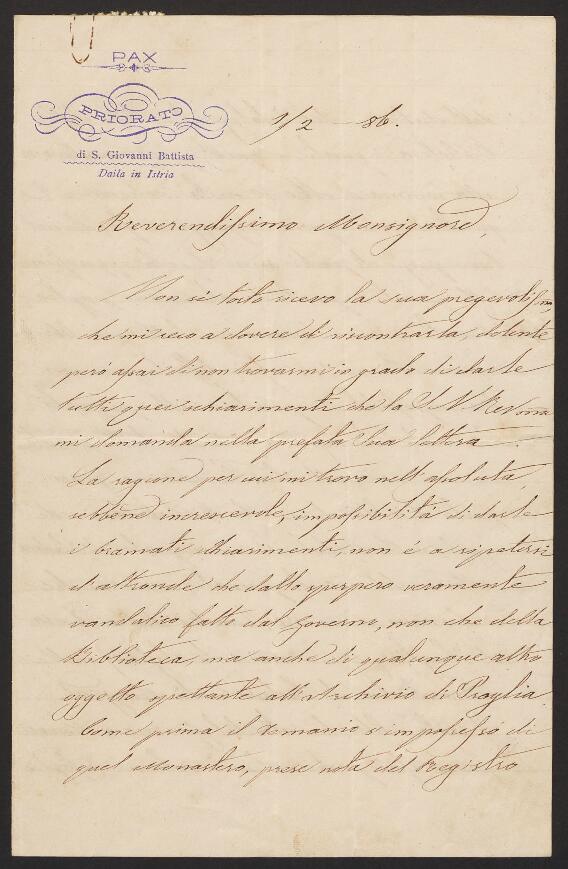 PAX
PRIORATO
di S. Giovanni Battista
Daila in Istria
1/2 - 86.
Reverendissimo Monsignore,
Non sì tosto ricevo la sua pregevolissma,
che mi reco a dovere di riscontrarla, dolente
però assai di non trovarmi in grado di darle
tutti quei schiarimenti che la S. V. Revma
mi domanda nella prefata Sua lettera.
La ragione per cui mi trovo nell'assoluta,
sebbene increscevole, impossibilità di darle
i bramati schiarimenti, non è a ripetersi
d'altronde che dallo sperpero veramente
vandalico fatto dal Governo, non che della
Biblioteca, ma anche di qualunque altro
oggetto spettante all'Archivio di Praglia.
Come prima il Demanio s'impossessò di
quel Monastero, prese nota del Registro